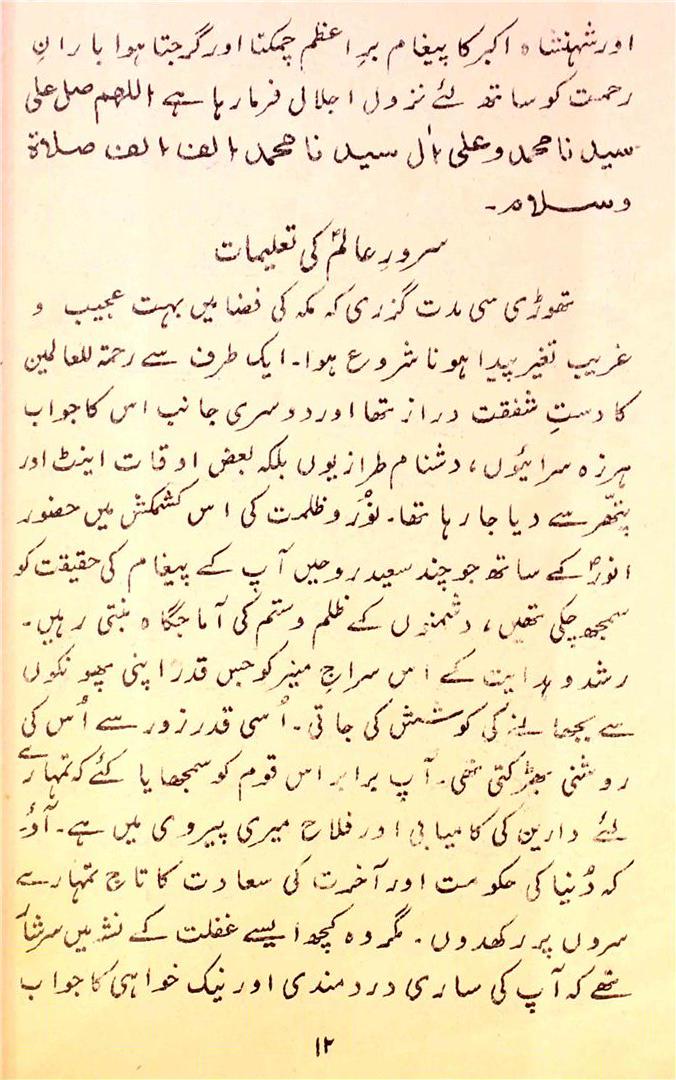 اور شہنشاہ اکبر کا پیغام برِ اعظم چمکتا اور گرجتا ہوا بارانِ
رحمت کو ساتھ لئے نزول اجلال فرما رہا ہے اللھم صل علی
سیدنا محمد و علی اٰل سیدنا محمد الف الف صلاۃ
وسلام۔
سرورِ عالمؐ کی تعلیمات
تھوڑی سی مدت گزری کہ مکہ کی فضا میں بہت عجیب و
غریب تغیر پیدا ہونا شروع ہوا۔ ایک طرف سے رحمۃ للعالمین
کا دستِ شفقت دراز تھا اور دوسری جانب اس کا جواب
ہرزہ سرائیوں، دشنام طرازیوں بلکہ بعض اوقات اینٹ اور
پتھّر سے دیا جا رہا تھا۔ نُوْر و ظلمت کی اس کشمکش میں حضور
انورؐ کے ساتھ جو چند سعید روحیں آپ کے پیغام کی حقیقت کو
سمجھ چکی تھیں، دشمنوں کے ظلم و ستم کی آماجگاہ بنتی رہیں۔
رشد و ہدایت کے اس سراجِ منیر کو جس قدر اپنی پھونکوں
سے بجھانے کی کوشش کی جاتی۔ اُسی قدر زور سے اُس کی
روشنی بھڑکتی تھی۔ آپ برابر اس قوم کو سمجھایا کئے کہ تمہارے
لئے دارین کی کامیابی اور فلاح میری پیروی میں ہے۔ آؤ۔
کہ دُنیا کی حکومت اور آخرت کی سعادت کا تاج تمہارے
سروں پر رکھدوں۔ مگر وہ کچھ ایسے غفلت کے نشہ میں سرشار
تھے کہ آپ کی ساری دردمندی اور نیک خواہی کا جواب
۱۲